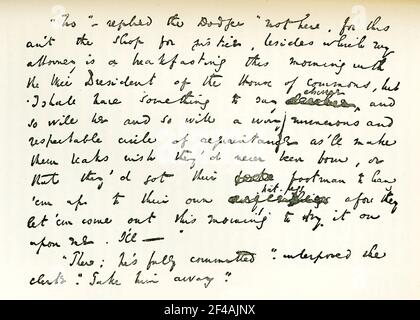 "No" – replied the Dodger "not here, for this
ain't the shop for justice, besides which my
attorney is a breakfasting this morning with
the Wice President of the House of commons, but
I shall have something to say elsewhere, and
so will he and so will a wery numerous and
respectable circle of acquaintance as'll make
them beaks wish they'd never been born, or
that they'd got their footman to hang
'em up to their own hat-pegs afore they
let 'em come out this morning to try it on
upon me. I'll — "
"There; he's fully committed" interposed the
clerk. "Take him away".
alamy
Image ID: 2F4AJNX
www.alamy.com